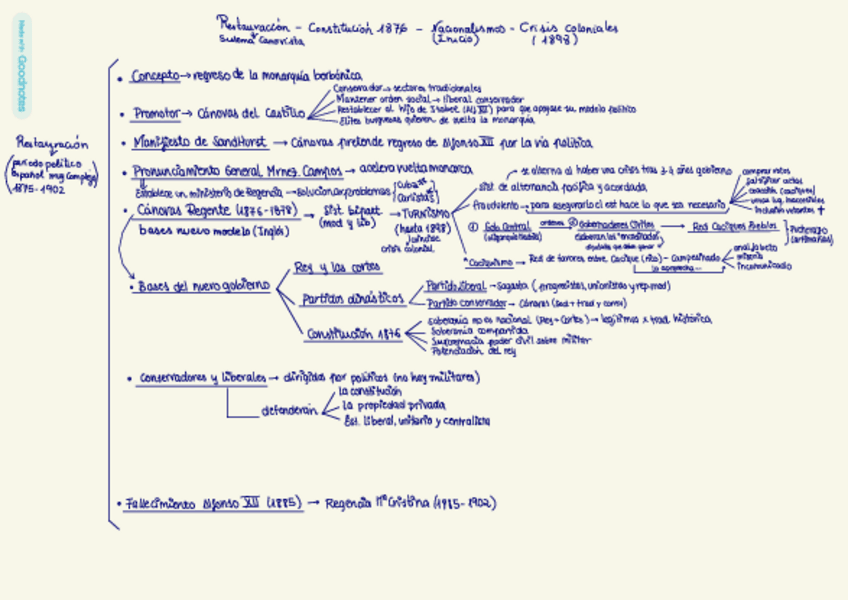 Made with Goodnotes
Restauración - Constitución 1876 - Nacionalismos - Crisis coloniales
Sistema Canovista (Inicio) (1898)
Restauración
(periodo político
español muy complejo)
1875-1902
• Concepto → regreso de la monarquía borbónica
• Promotor → Cánovas del Castillo
Conservador → sectores tradicionales
Mantener orden social → liberal conservador
Restablecer al hijo de Isabel (Alf XII) para que apoyase su modelo político
Elites burguesas quieren de vuelta la monarquía
• Manifiesto de SandHurst → Cánovas pretende regreso de Alfonso XII por la vía política
• Pronunciamiento General Mrnez. Campos → acelera vuelta monarca
Establece un ministerio de Regencia → solucionar problemas (Cuba Carlistas)
• Cánovas Regente (1876-1878) → Sist. bipart (mod y lib) → TURNISMO (hasta 1898)
bases nuevo modelo (Inglés)
crisis colonial
se alterna al haber una crisis tras 3-4 años gobierno
sist de alternancia pacífica y acordada
fraudulento → para asegurarlo el est hace lo que sea necesario
comprar votos
falsificar actas
coacción (caciques)
urnas lug. inaccesibles
incluían votantes †
① Gob Central órdenes ② Gobernadores Civiles → Red Caciques Pueblos } Pucherazo
elaboran los "encasillados"
diputados que deben ganar
* Caciquismo → Red de favores entre Cacique (rico) - Campesinado
lo aprovecha...
analfabeto
miseria
incomunicado
• Bases del nuevo gobierno
Rey y las cortes
Partidos dinásticos
Partido liberal → Sagasta (progresistas, unionistas y rep mod)
Partido conservador → Cánovas
Constitución 1876
Soberanía no es nacional (Rey + Cortes) → legítimos x trad histórica
Soberanía compartida
Supremacía poder civil sobre militar
Potenciación del rey
• Conservadores y liberales → dirigidos por políticos (no hay militares)
defenderán
la constitución
la propiedad privada
Est. liberal, unitario y centralista
• Fallecimiento Alfonso XII (1885) → Regencia Mª Cristina (1985-1902)